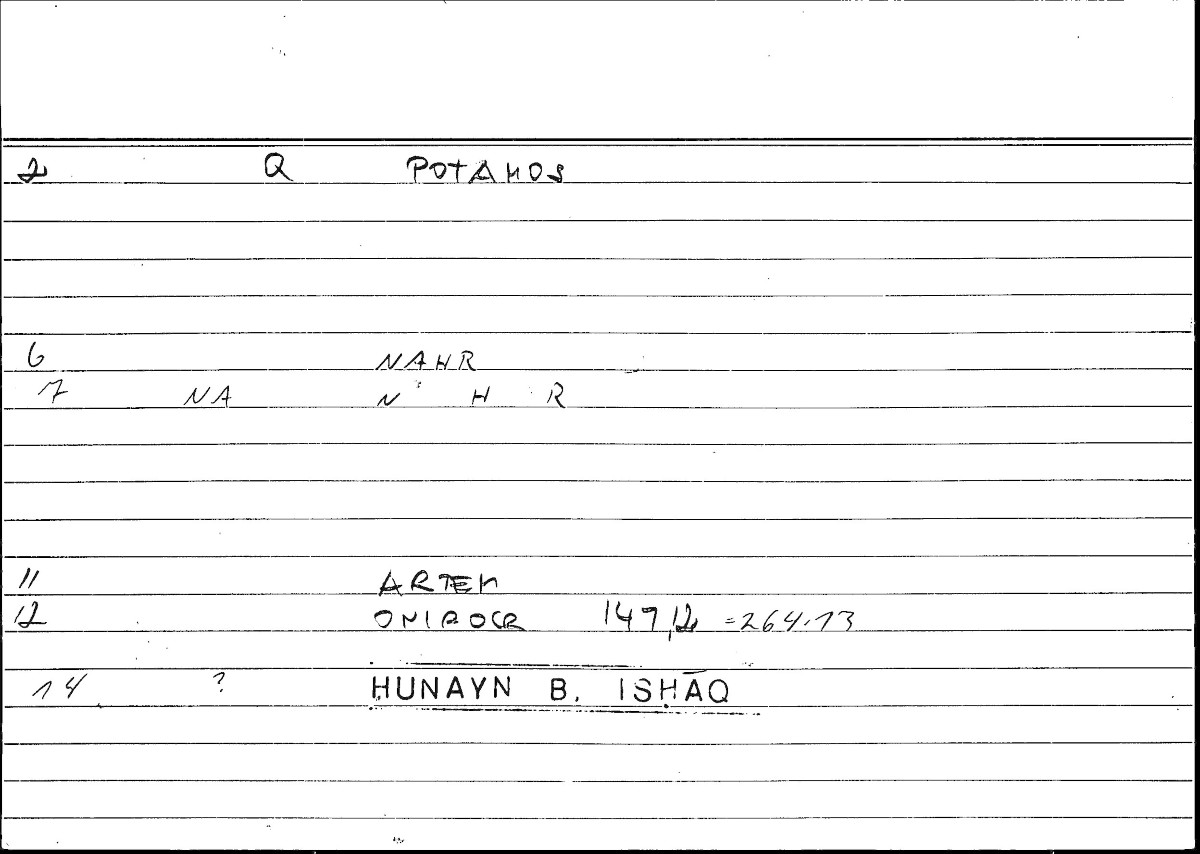 2 Q POTAMOS
6 NAHR
7 NA N H R
11 ARTEM
12 ONIROCR 147,12 =264.13
14 ? ḤUNAYN B. ISḤĀQ